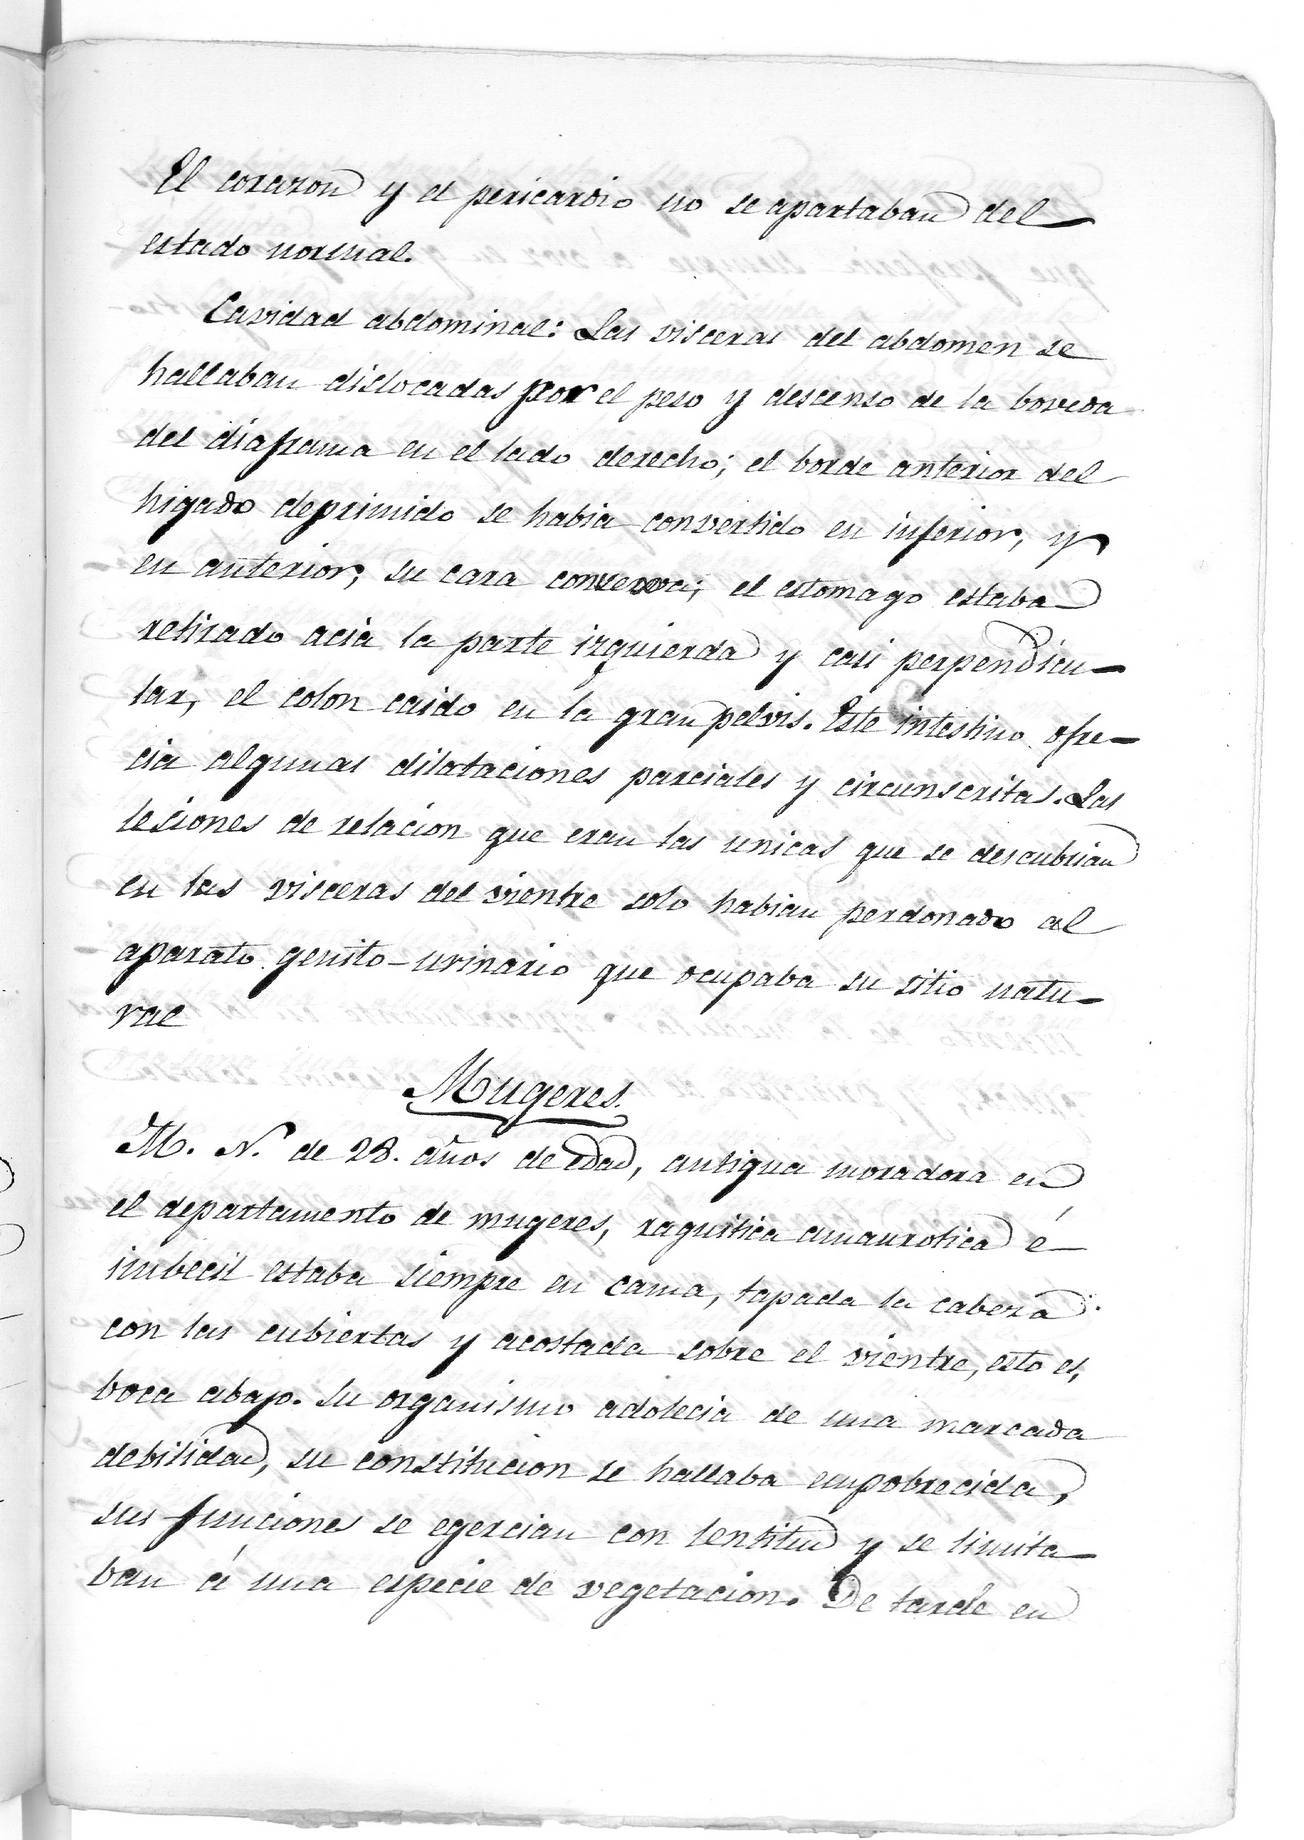 El corazon y el pericardio no se apartaban del
estado normal.
Cavidad abdominal: Las visceras del abdomen se
hallaban dislocadas por el peso y descenso de la boveda
del diaframa en el lado derecho; el borde anterior del
higado deprimido se habia convertido en inferior, y
en anterior, su cara convexa; el estomago estaba
retirado acia la parte izquierda y casi perpendicu-
lar, el colon caido en la gran pelvis. Este intestino ofre-
cia algunas dilataciones parciales y circunscritas. Las
lesiones de relacion que eran las unicas que se descubrian
en las visceras del vientre solo habian perdonado al
aparato genito-urinario que ocupaba su sitio natu-
ral
Mugeres.
M. N. de 28. años de edad, antigua moradora en
el departamento de mugeres, raquitica amaurotica é
imbecil estaba siempre en cama, tapada la cabeza
con las cubiertas y acostada sobre el vientre, esto es,
boca abajo. Su organismo adolecia de una marcada
debilidad, su constitucion se hallaba empobrecida,
sus funciones se egercian con lentitud y se limita-
ban á una especie de vegetacion. De tarde en